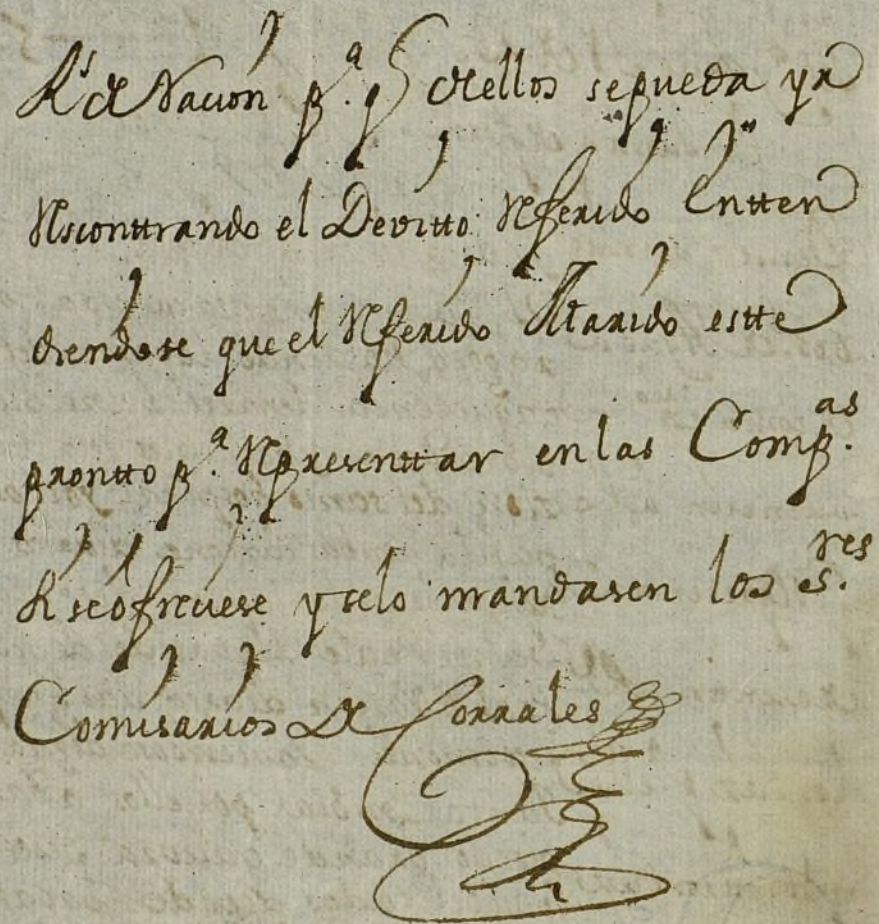 Rs de Nacion pa. q de ellos sepueda ya
Resconttrando el Devitto Referido Entten
diendose que el Referido Marido estte
prontto pa. Representtar en las Compas.
R seofreciese y selo mandasen los Sres.
Comisarios de Corrales